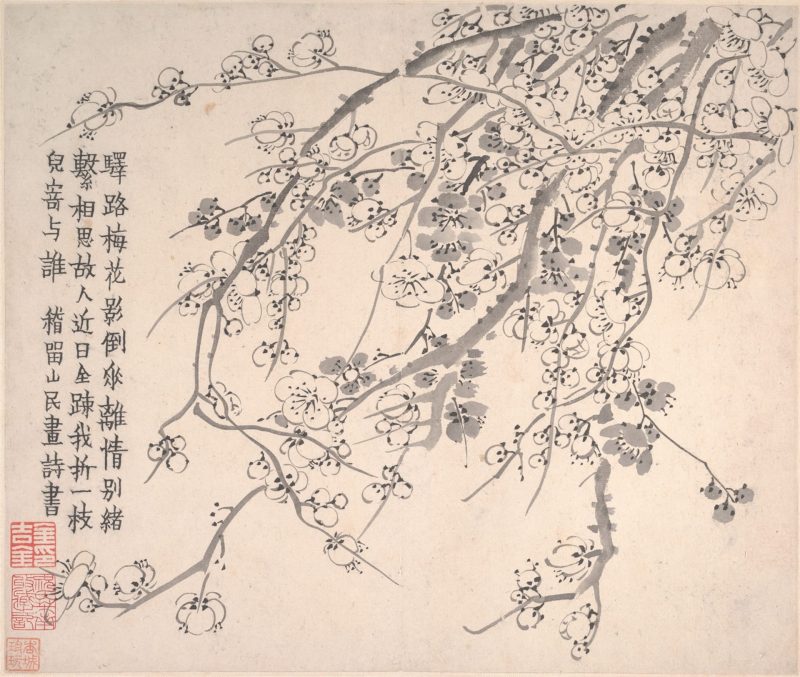 驛路梅花影倒垂離情别緒
繫相思故人近日全踈我折一枝
兒寄与誰 稽留山民畫詩書
金印吉金